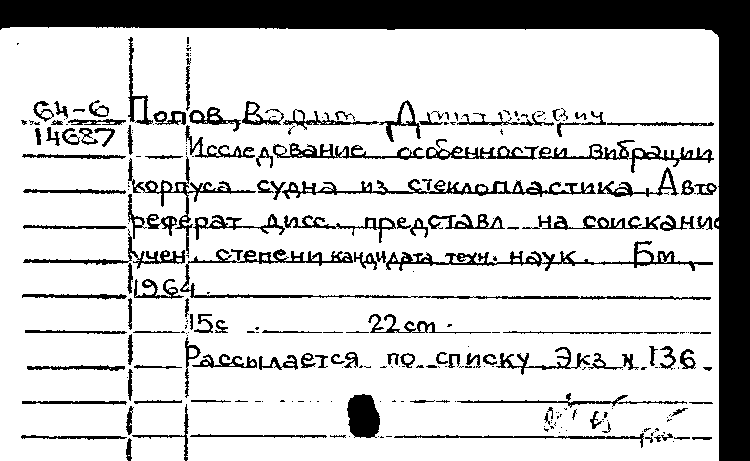 64-6 Попов, Вадим Дмитриевич
14687
Исследование особенностей вибрации
корпуса судна из стеклопластика. Авто
реферат дисс., представл на соискание
учен. степени кандидата техн. наук. Бм,
1964.
15с. 22см.
Рассылается по списку. Экз № 136.